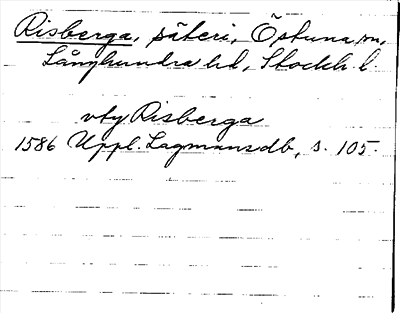 Risberga, säteri, Östuna sn,
Långhundra hd, Stockh. l.
vty Risberga
1586 Uppl. Lagmansdb, s. 105